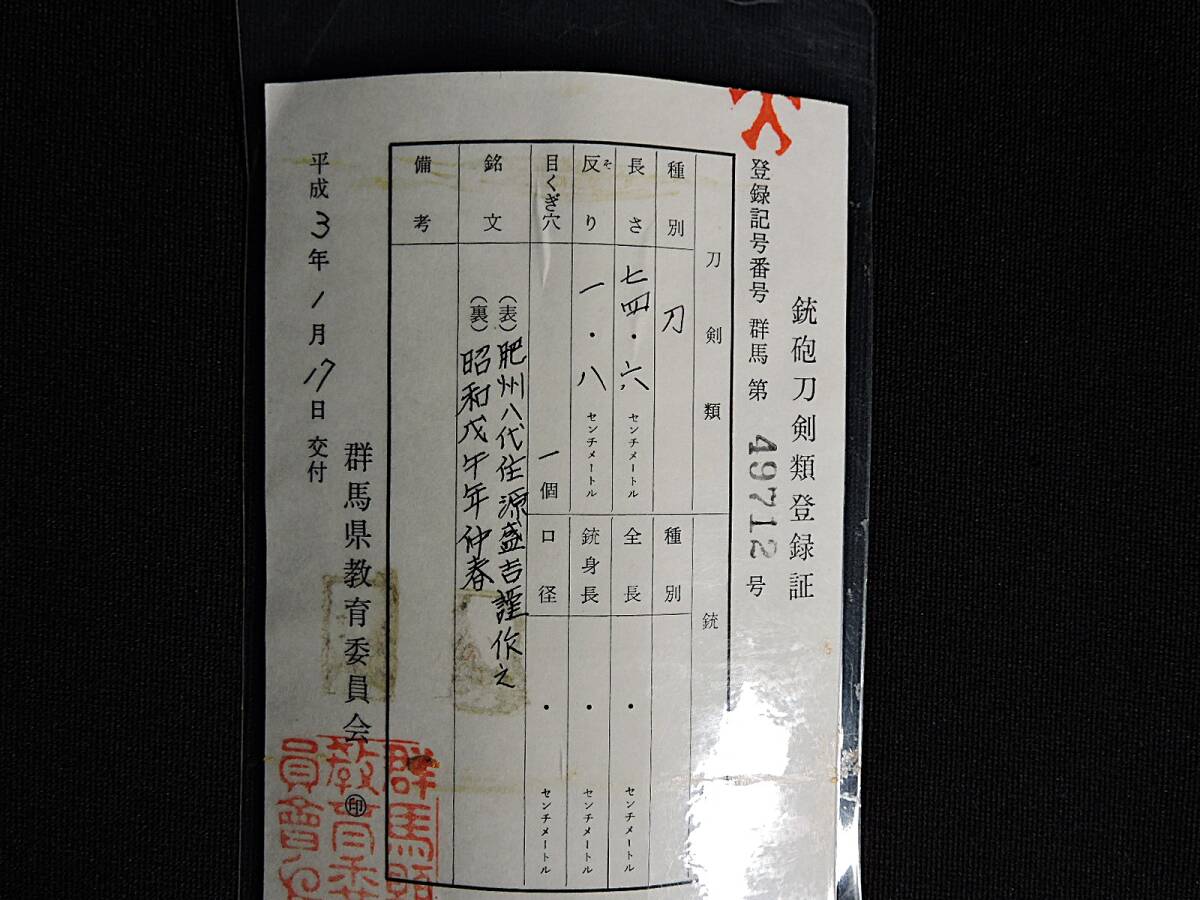 銃砲刀剣類登録証
登録記号番号 群馬 第 49712 号
刀剣類
銃
種別
刀
種別
長さ
七四・六 センチメートル
全長
・ センチメートル
反り
そ
一・八 センチメートル
銃身長
・ センチメートル
目くぎ穴
一個
口径
・ センチメートル
銘文
(表)肥州八代住源盛吉謹作之
(裏)昭和戊午年仲春
備考
平成3年1月17日交付
群馬県教育委員会 ㊞
群馬縣
教育委
員會